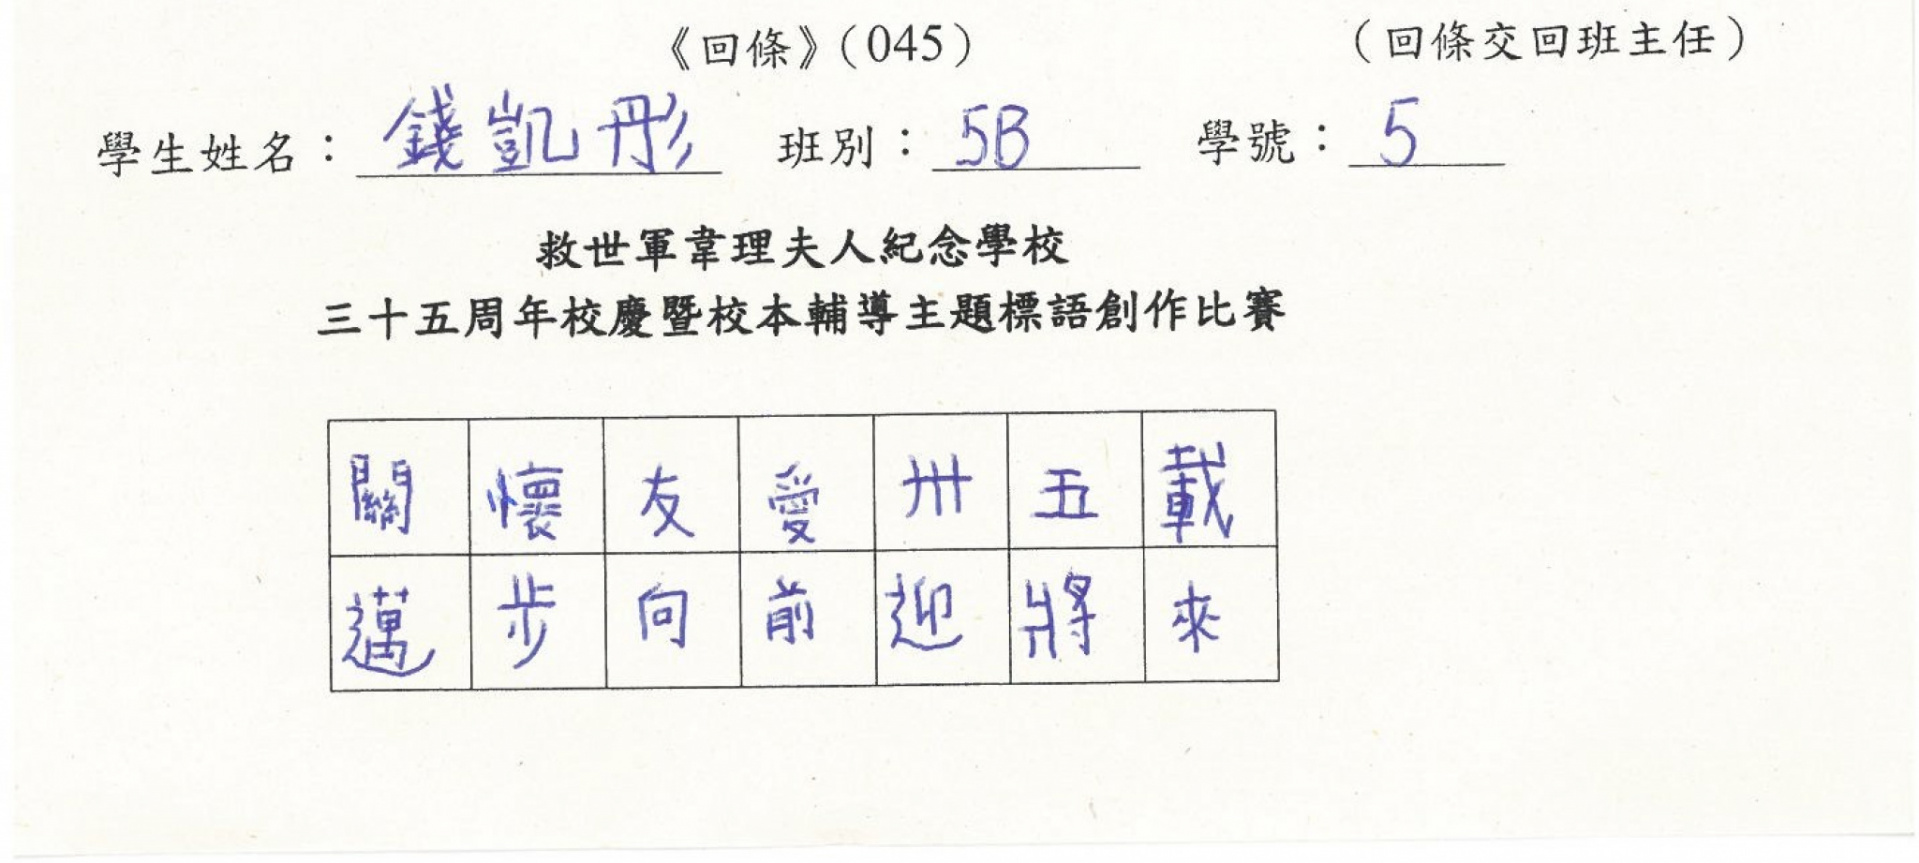 《回條》（045）
（回條交回班主任）
學生姓名：錢凱彤 班別：5B 學號：5
救世軍韋理夫人紀念學校
三十五周年校慶暨校本輔導主題標語創作比賽
關懷友愛卅五載
邁步向前迎將來